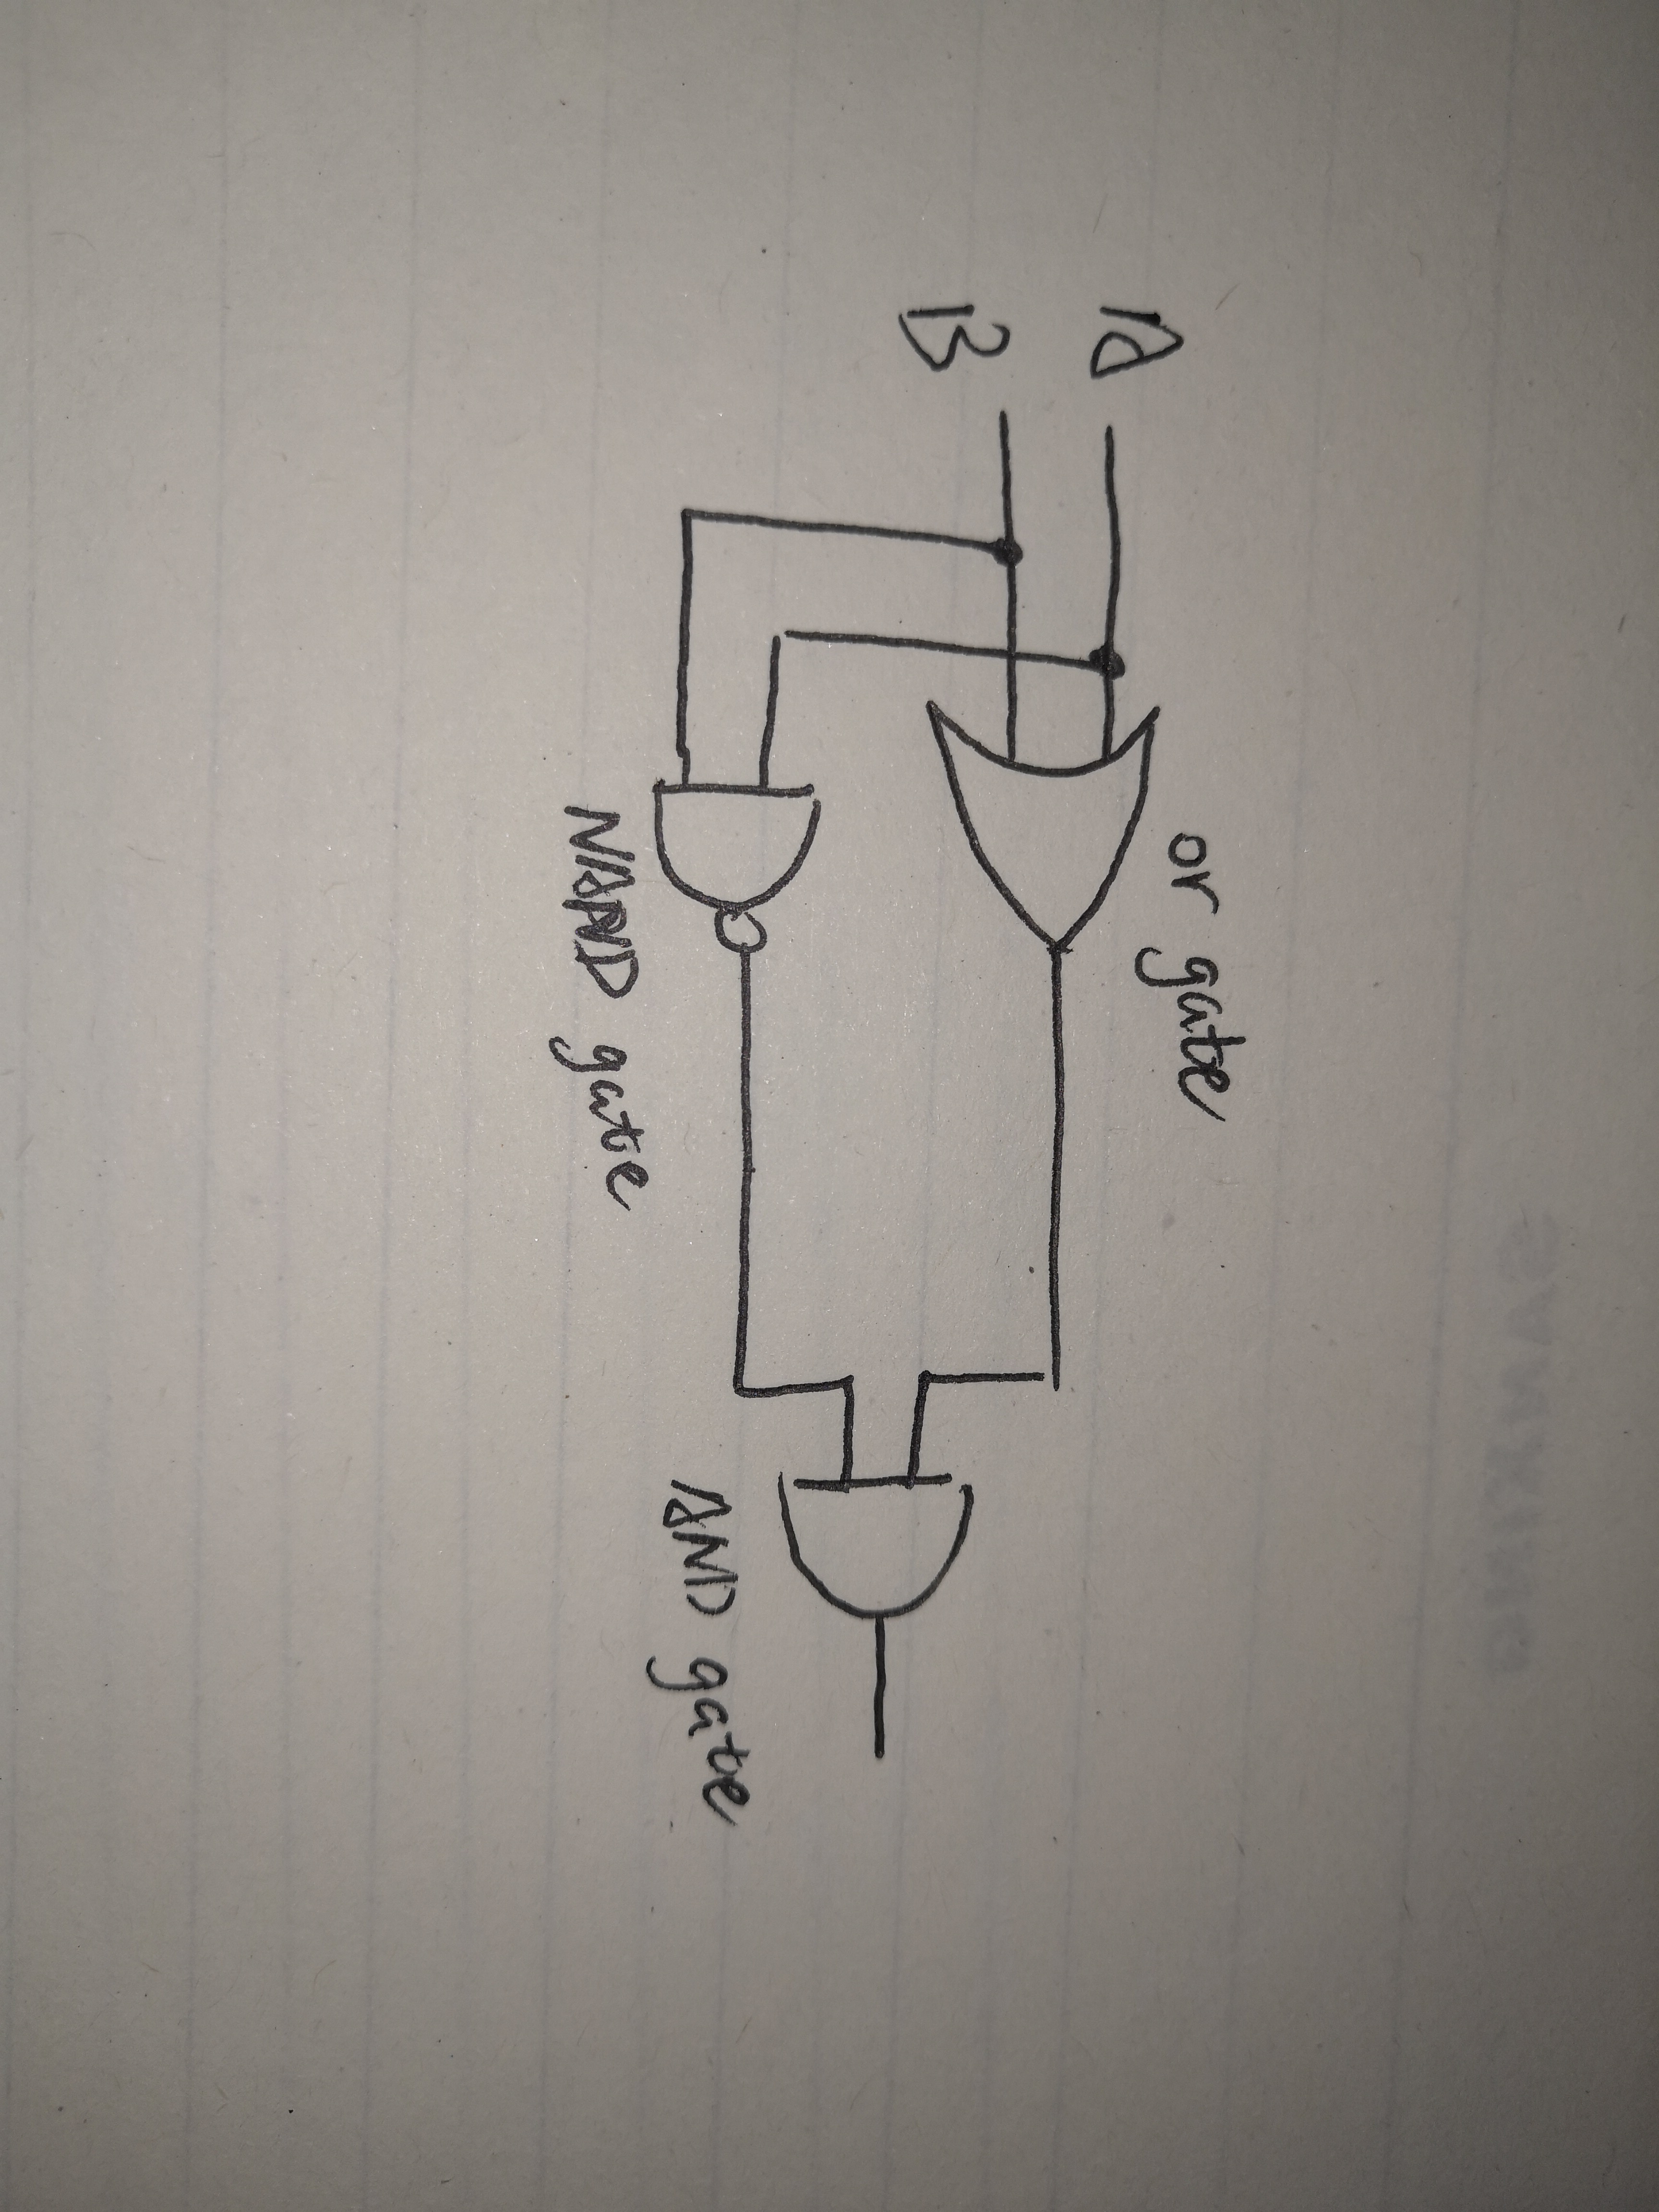 A
B
or gate
NAND gate
AND gate